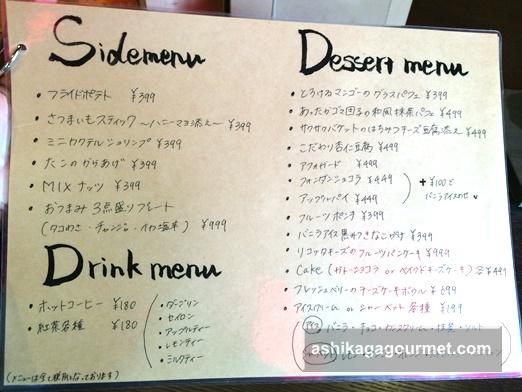 Sidemenu
・フライドポテト ¥399
・さつまいもスティック 〜ハニーマヨ添え〜 ¥399
・ミニカクテルシュリンプ ¥399
・たこのからあげ ¥399
・MIXナッツ ¥399
・おつまみ 3点盛りプレート
(タコわさ・チャンジャ・イカ塩辛) ¥999
Drink menu
・ホットコーヒー ¥180
・紅茶各種 ¥180
・ダージリン
・セイロン
・アップルティー
・レモンティー
・ミルクティー
(メニューは全て税別となっております)
Dessert menu
・とろけるマンゴーのグラスパフェ ¥399
・あったかゴマ団子の和風抹茶パフェ ¥499
・サクサクバケットのはちみつチーズ豆腐添え ¥499
・こだわり杏仁豆腐 ¥449
・アフォガード ¥449
・フォンダンショコラ ¥449
・アップルパイ ¥449
+¥100で
バニラアイスのせ
・フルーツポンチ ¥399
・バニラアイス黒みつきなこがけ ¥399
・リコッタチーズのフルーツパンケーキ ¥999
・Cake (ガトーショコラ or ベイクドチーズケーキ) 各¥499
・フレッシュベリーのチーズケーキボウル ¥699
・アイスクリーム or シャーベット 各種 ¥199
アイス バニラ・チョコ・
ashikagagourmet.com